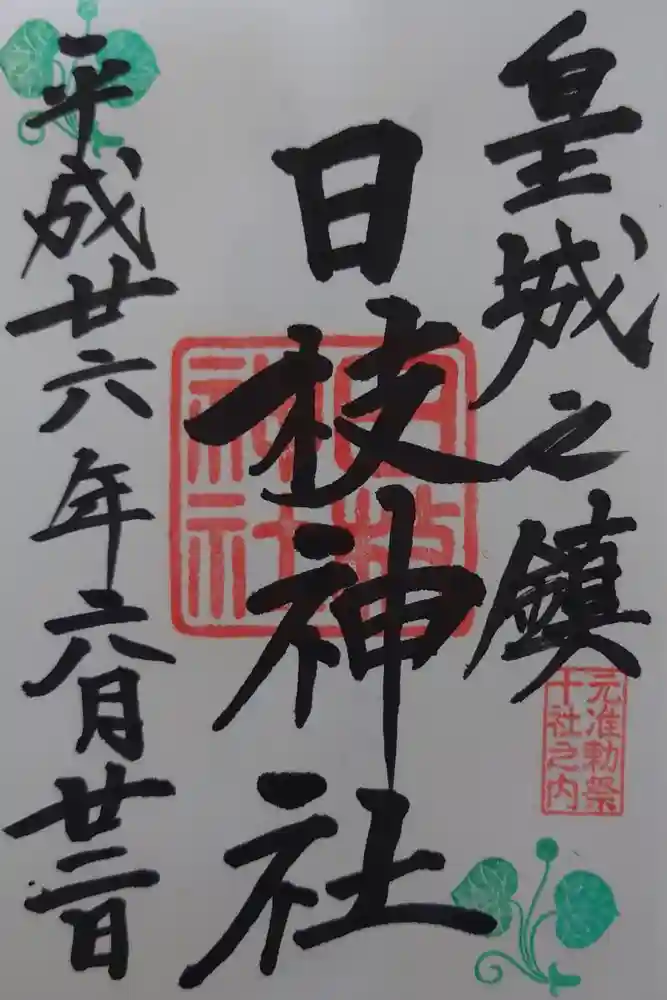 皇城之鎮
元准勅祭
十社之内
日枝神社
日枝
神社
平成廿六年六月廿二日